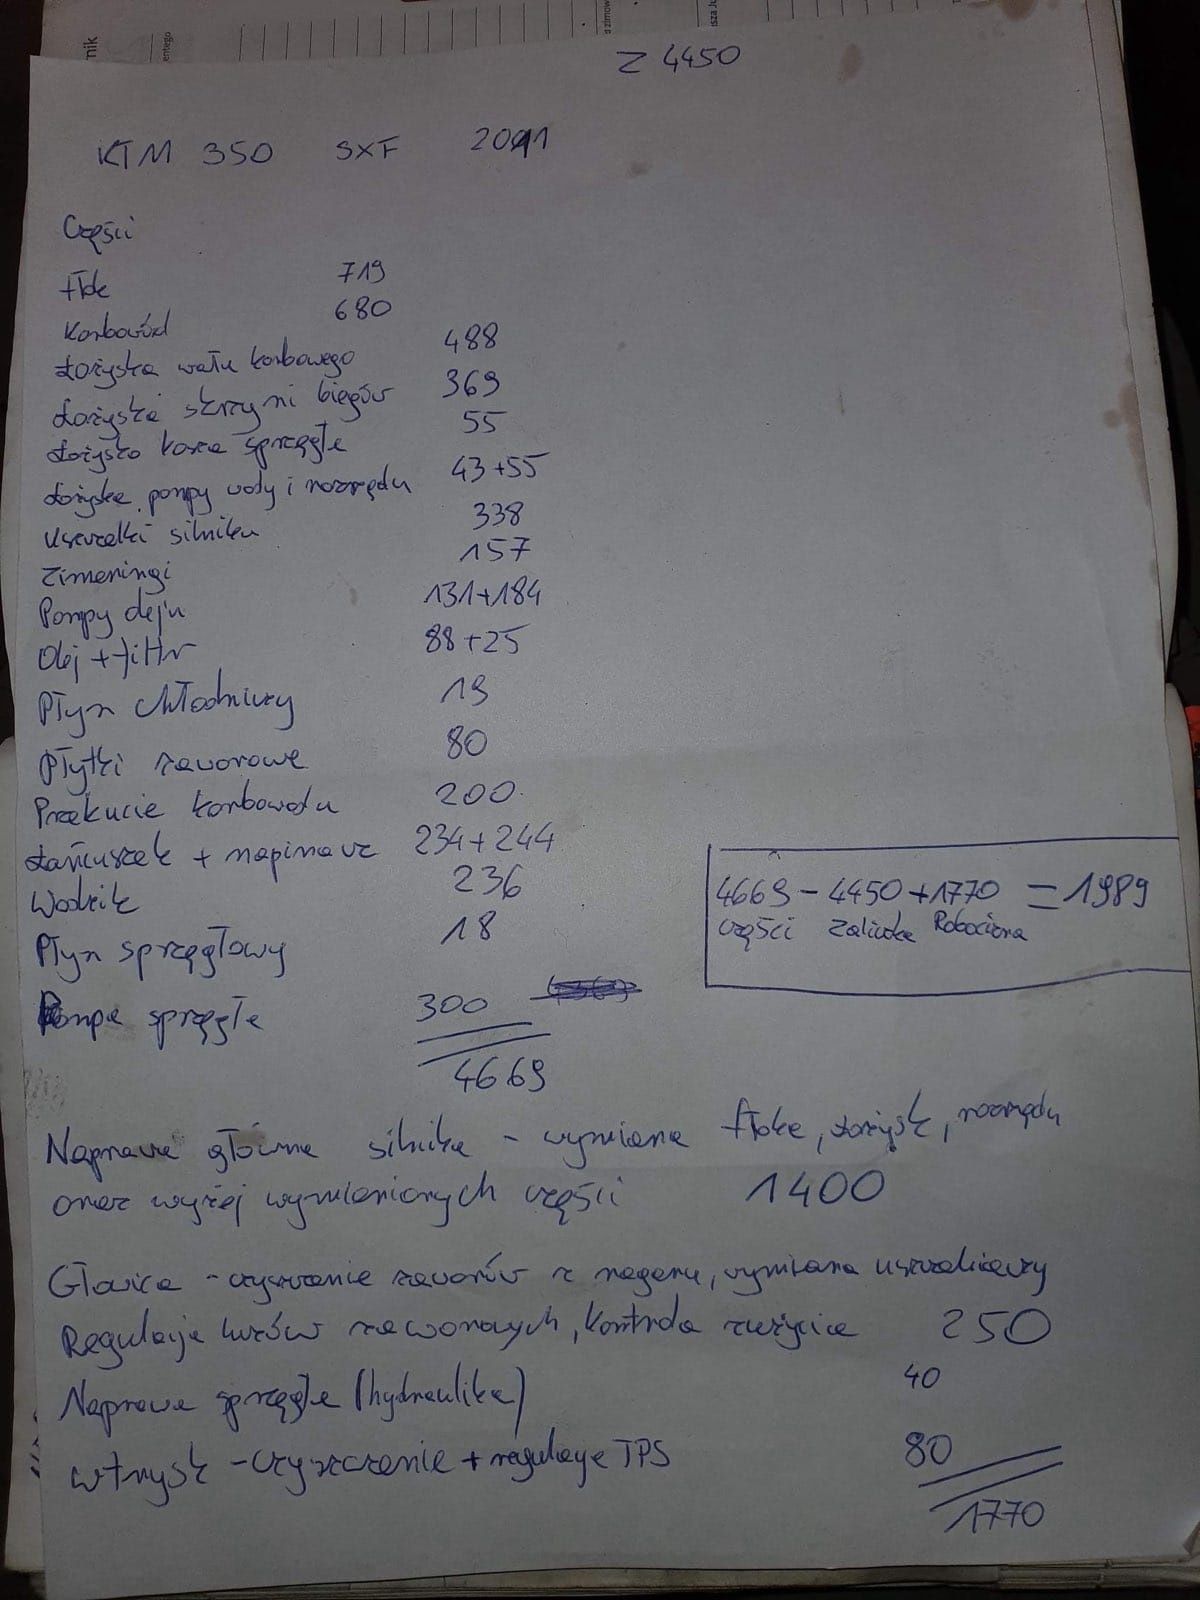 Z 4450
KTM 350 SXF 2011
Części
tłok 719
Korbowód 680
Łożyska wału korbowego 488
Łożyska skrzyni biegów 369
Łożysko kosza sprzęgła 55
Łożyska pompy wody i rozrządu 43+55
Uszczelki silnika 338
Zimeringi 157
Pompy oleju 131+184
Olej + filtr 88+25
Płyn chłodniczy 19
Płytki zaworowe 80
Przekucie korbowodu 200
Łańcuszek + napinacz 234+244
Wodzik 236
Płyn sprzęgłowy 18
Pompa sprzęgła 300
4669
4669 - 4450 + 1770 = 1989
części zaliczka Robocizna
Naprawa główna silnika - wymiana tłoka, łożysk, rozrządu
oraz wyżej wymienionych części 1400
Głowica - czyszczenie zaworów z nagaru, wymiana uszczelniaczy
Regulacja luzów zaworowych, kontrola zużycia 250
Naprawa sprzęgła (hydraulika) 40
wtrysk - czyszczenie + regulacje TPS 80
1770